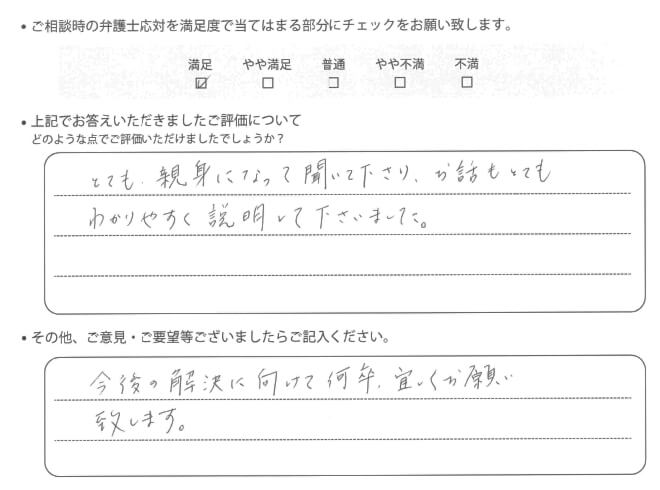 ・ご相談時の弁護士応対を満足度で当てはまる部分にチェックをお願い致します。
満足 やや満足 普通 やや不満 不満
☑ □ □ □ □
・上記でお答えいただきましたご評価について
どのような点でご評価いただけましたでしょうか？
とても、親身になって聞いて下さり、お話もとても
わかりやすく説明して下さいました。
・その他、ご意見・ご要望等ございましたらご記入ください。
今後の解決に向けて何卒、宜しくお願い
致します。